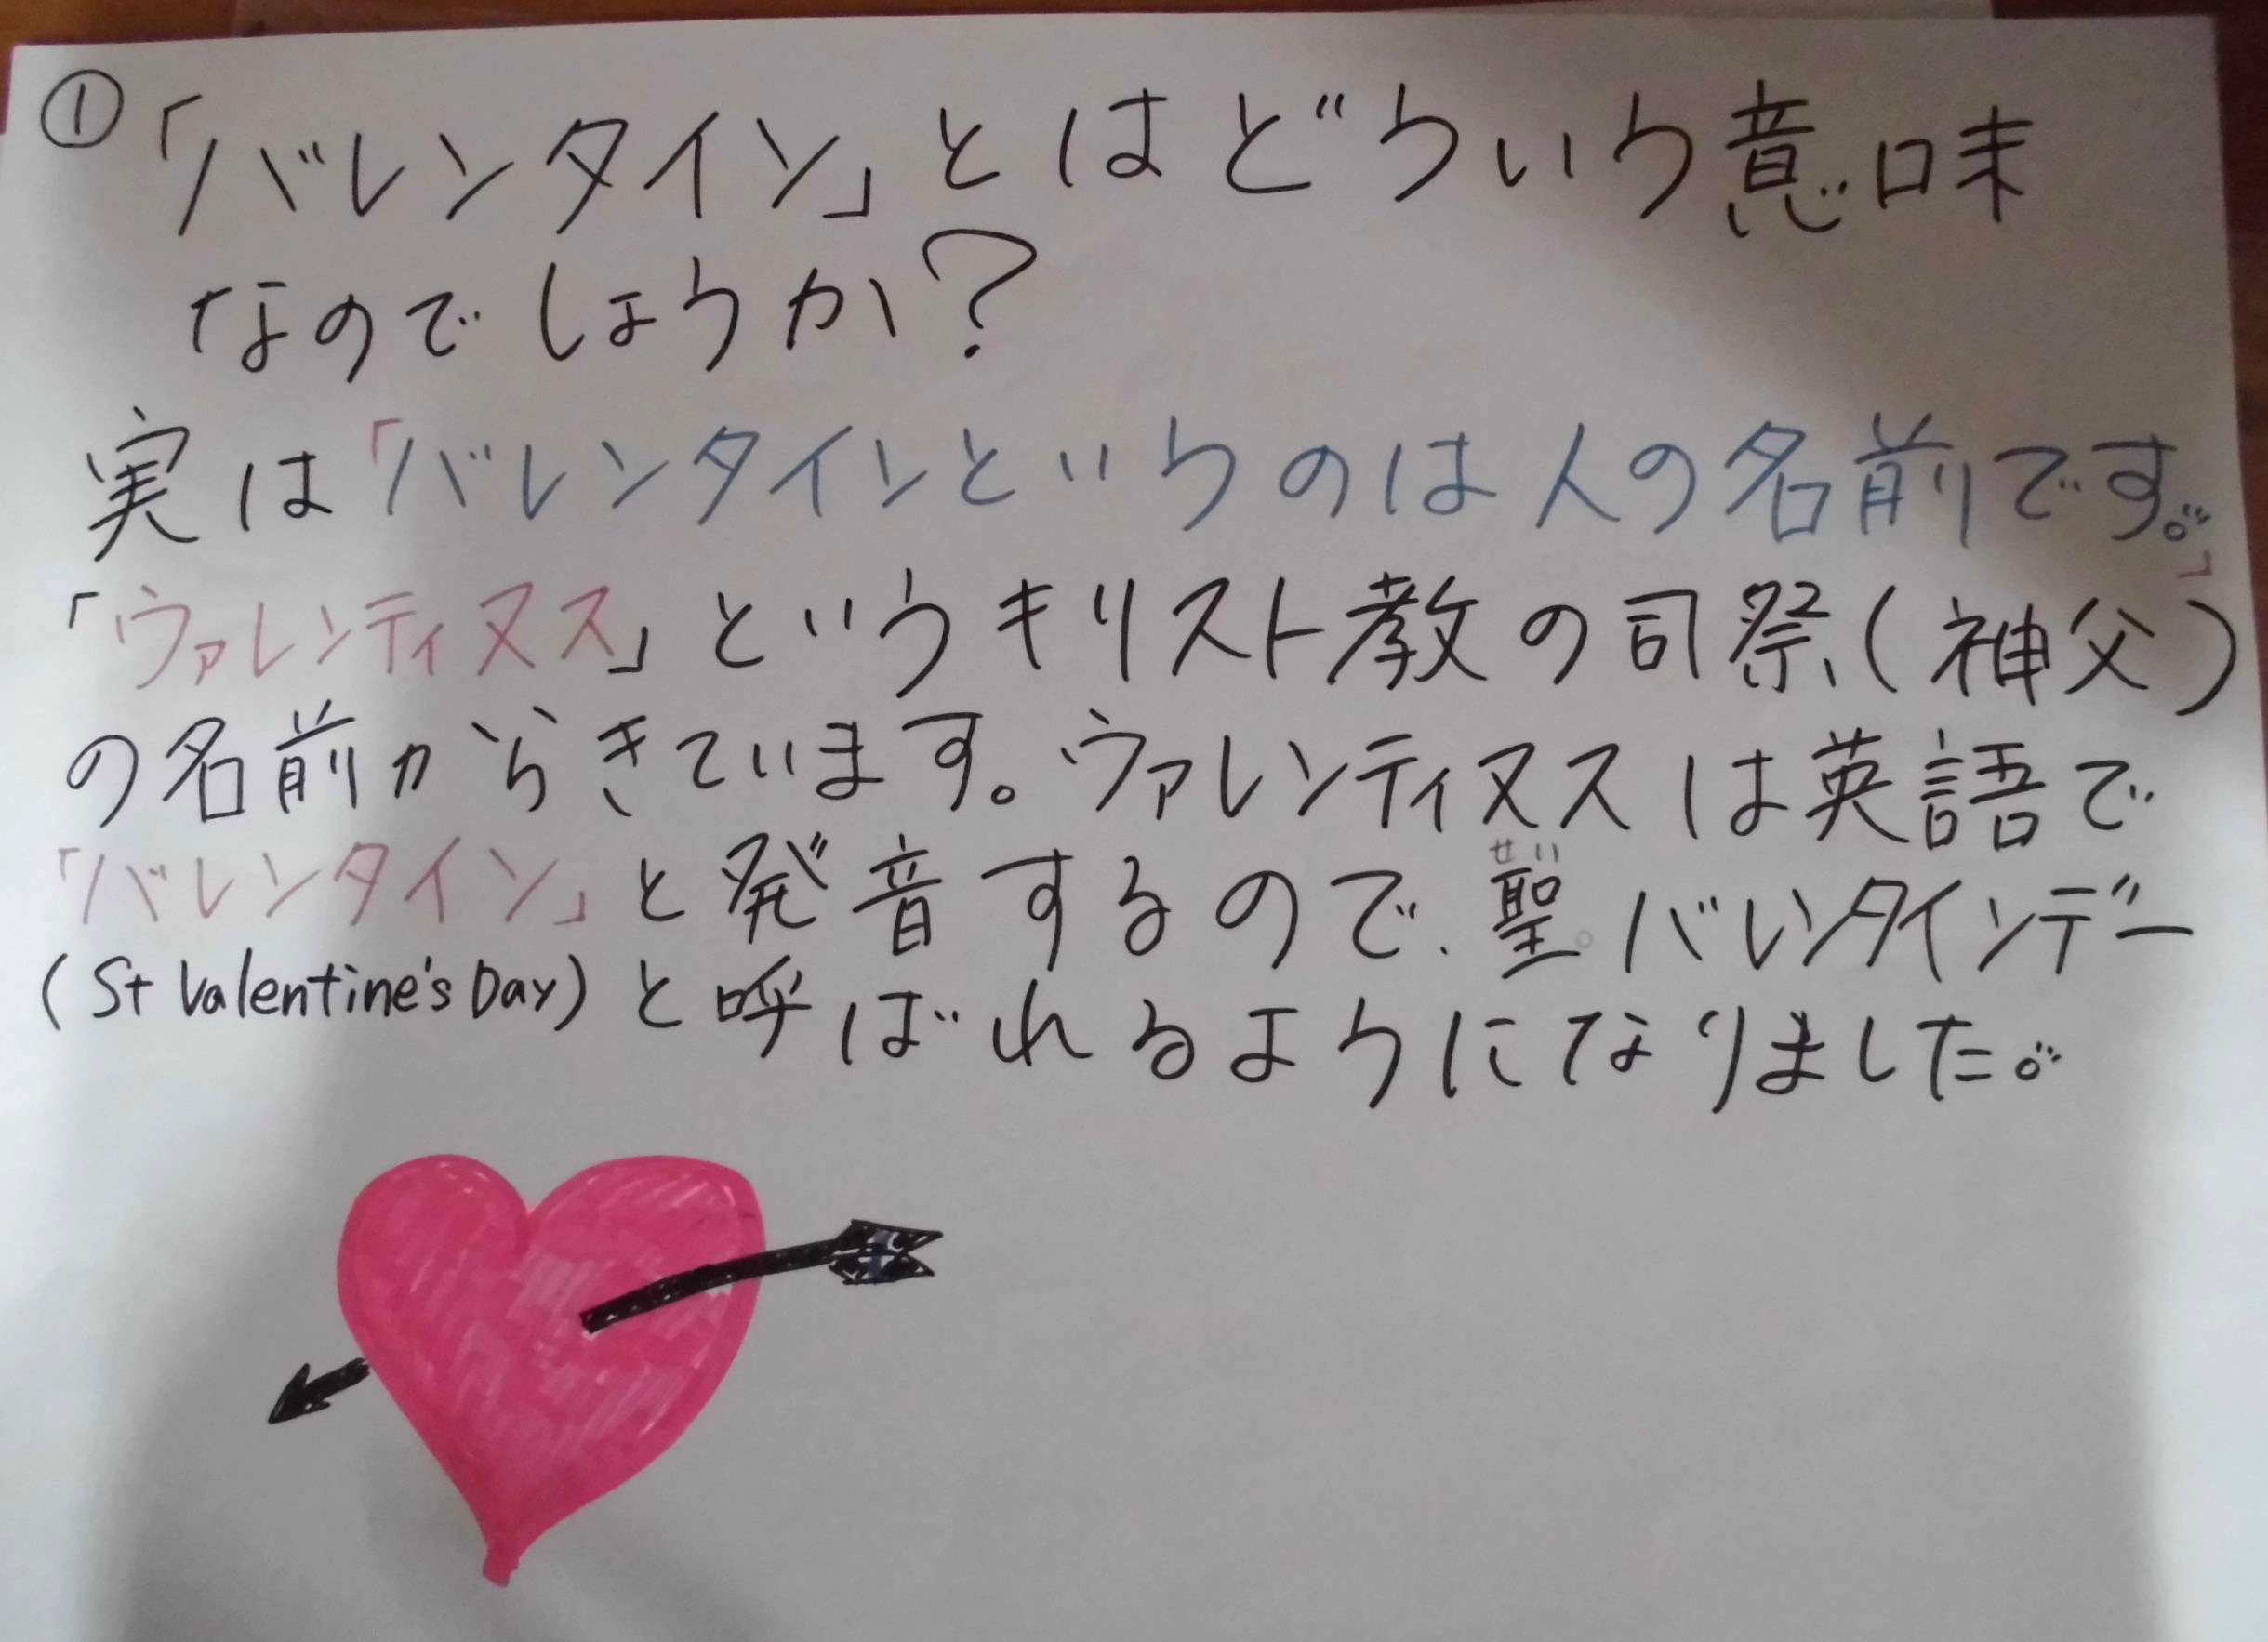 ① 「バレンタイン」とはどういう意味
なのでしょうか?
実は「バレンタインというのは人の名前です。」
「ヴァレンティヌス」というキリスト教の司祭(神父)
の名前からきています。ヴァレンティヌスは英語で
「バレンタイン」と発音するので、聖バレンタインデー
せい
(St Valentine's Day)と呼ばれるようになりました。